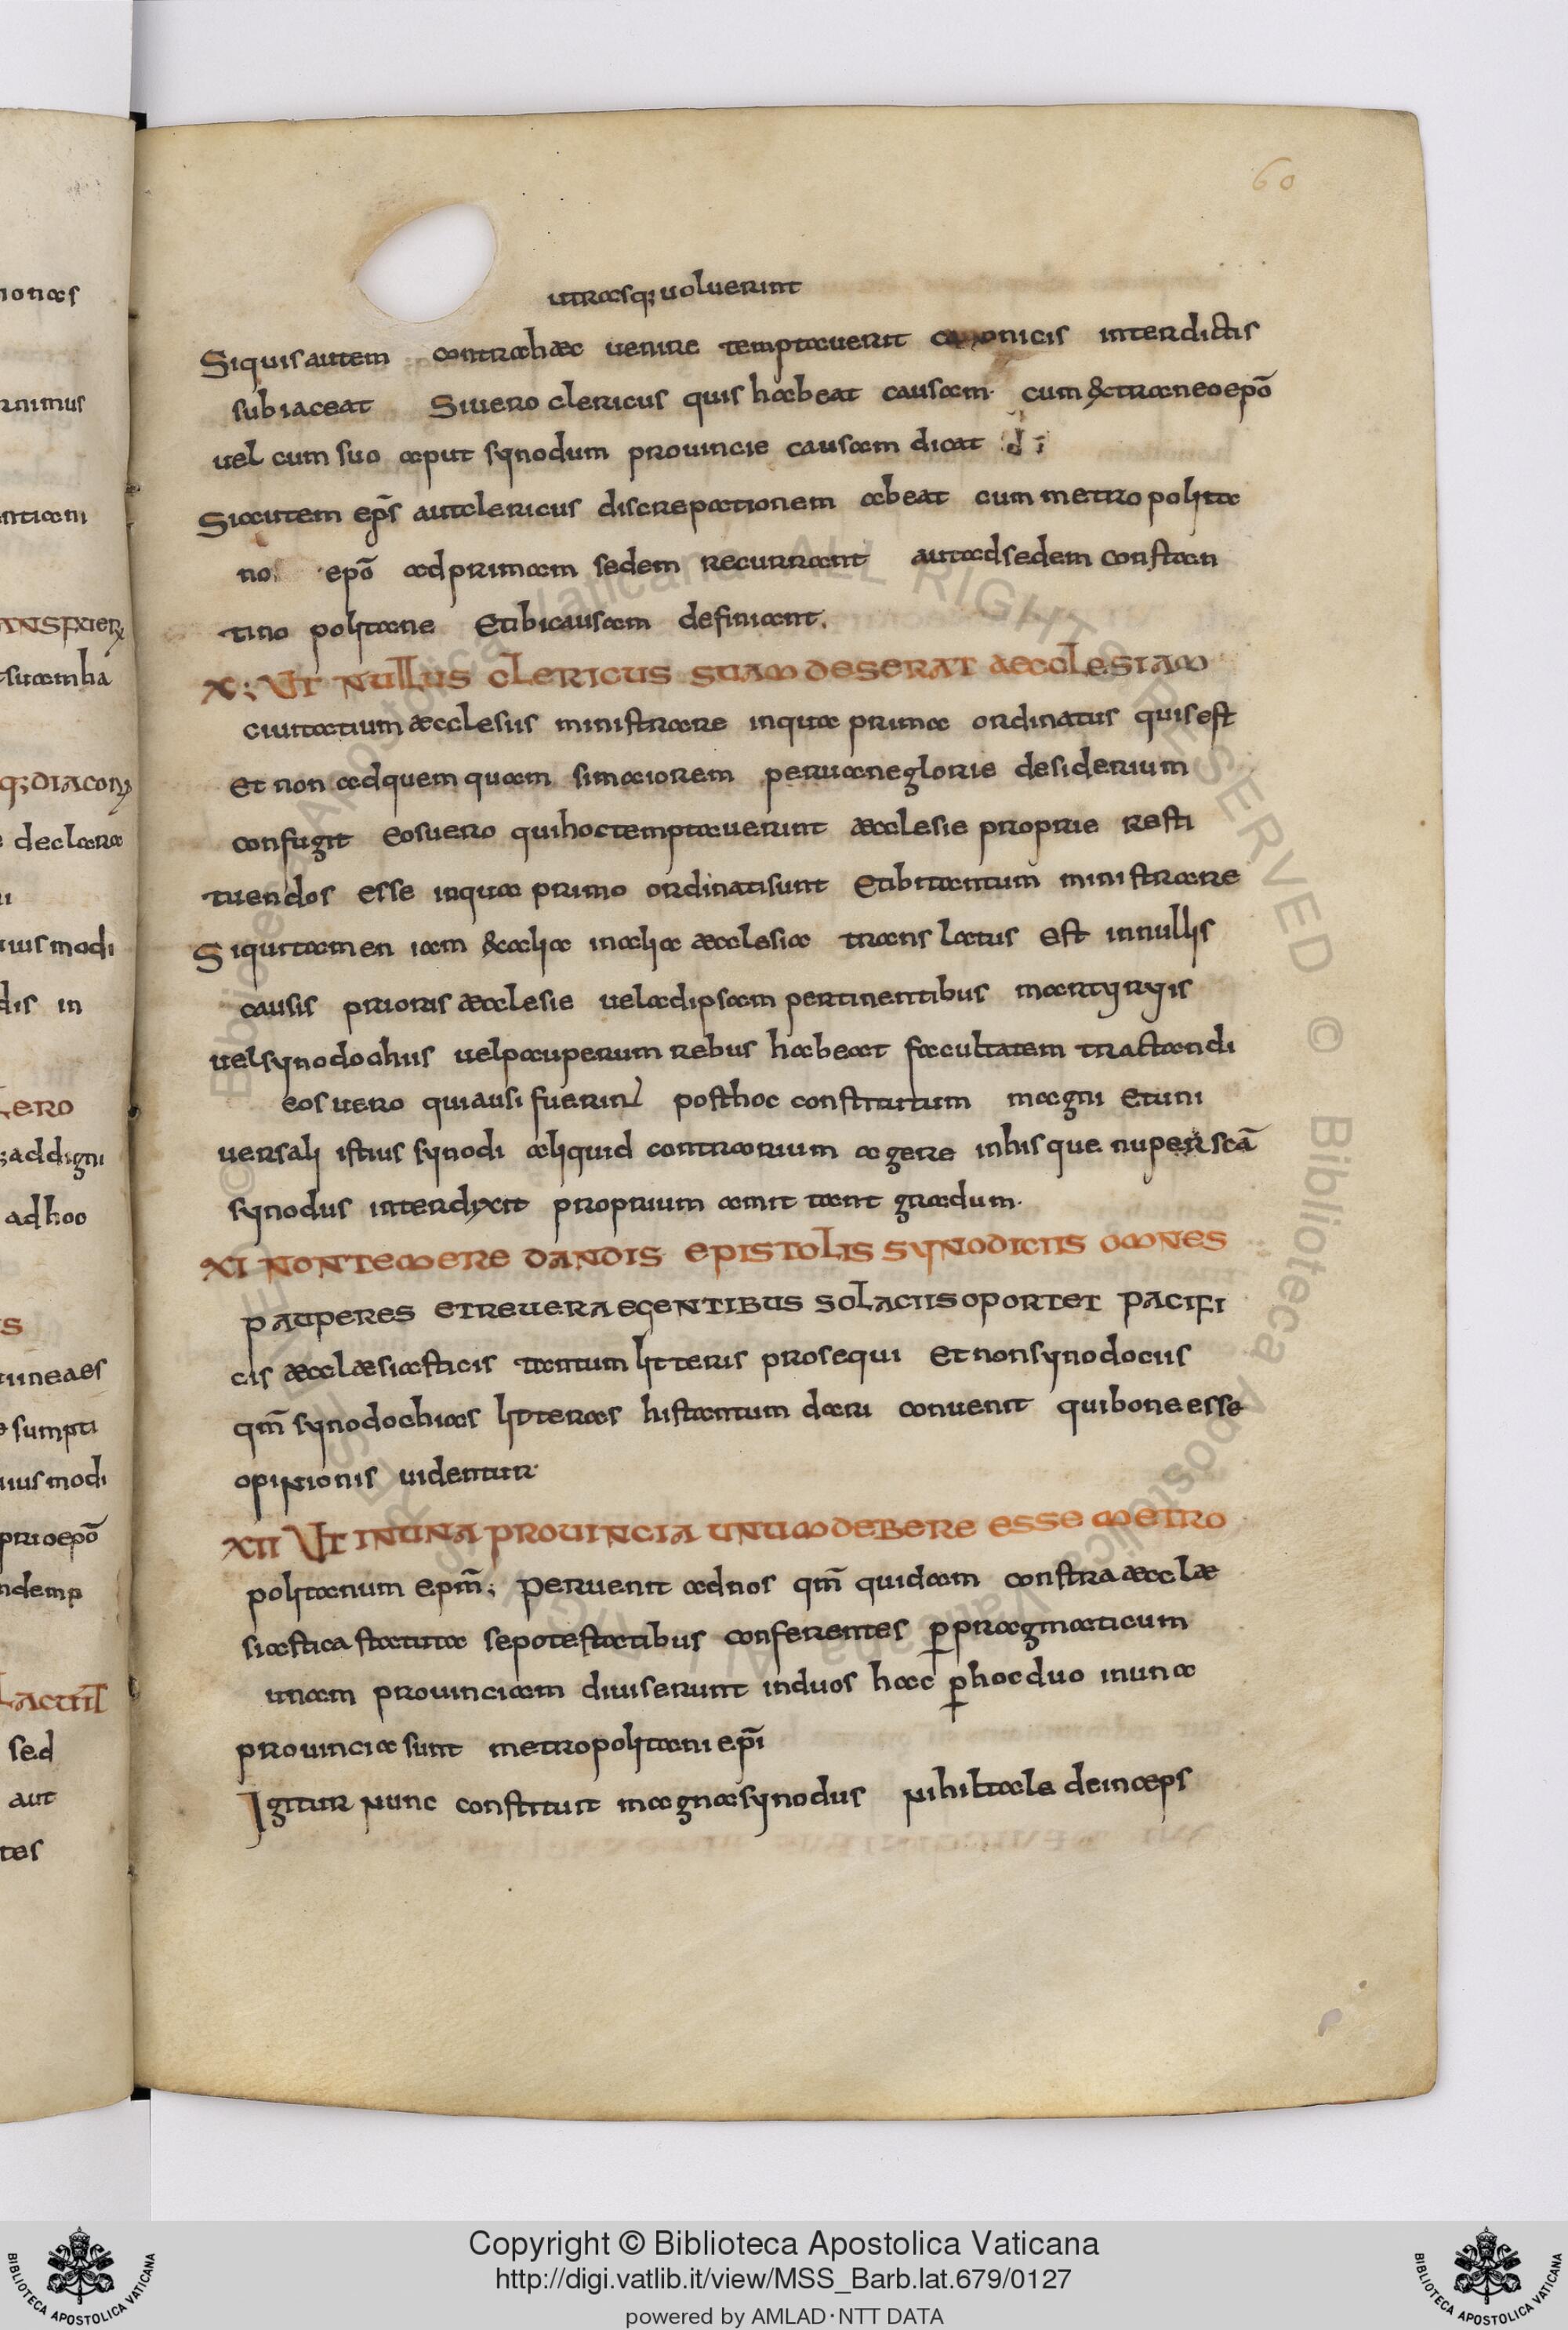 60
utrasq; uoluerint
Siquis autem contrahæc uenire temptauerit canonicis interdictis
subiaceat Siuero clericus quis habeat causam· cum &traneo epō
uel cum suo aput synodum prouincie causam dicat
Siautem ep̄s aut clericus discrepationem abeat cum metro polita
no epō adprimam sedem recurrant aut adsedem constan
tino politane Etibicausam definiant.
X; UT NULLUS CLERICUS SUAM DESERAT AECCLESIAM
ciuitatium æcclesiis ministrare inqua prima ordinatus quis est
Et non adquem quam simaiorem peruaneglorie desiderium
confugit Eosuero quihoctemptauerint æcclesie proprie resti
tuendos esse inqua primo ordinatisunt Etibitantum ministrare
Siquitamen iam &calia inalia æcclesia trans latus est innullis
causis prioris æcclesie ueladipsam pertinentibus martyryis
uelsynodochiis uelpauperum rebus habeat facultatem tractandi
eos uero quiausi fuerint posthoc constitutum magni Etuni
uersali istius synodi aliquid contrarium agere inhis que nuper scā
synodus interdixit proprium amit tant gradum·
XI NONTEMERE DANDIS EPISTOLIS SYNODICIIS OMNES
PAUPERES ETREUERAEGENTIBUS SOLACIISOPORTET PACIFI
cis æcclæsiasticis tantum litteris prosequi Et nonsynodociis
qm̄ synodochias litteras histantum dari conuenit quibone esse
opinionis uidentur·
XII UT INUNA PROUINCIA UNUMDEBERE ESSE METRO
politanum ep̄m; peruenit adnos qm̄ quidam constra æcclæ
siastica statuta sepotestatibus conferentes p̱pragmaticum
unam prouinciam diuiserunt induos hac p̱hocduo inuna
prouincia sunt metropolitani ep̄i
Igitur nunc constituit magnasynodus nihiltale deinceps
Copyright © Biblioteca Apostolica Vaticana
http://digi.vatlib.it/view/MSS_Barb.lat.679/0127
powered by AMLAD·NTT DATA